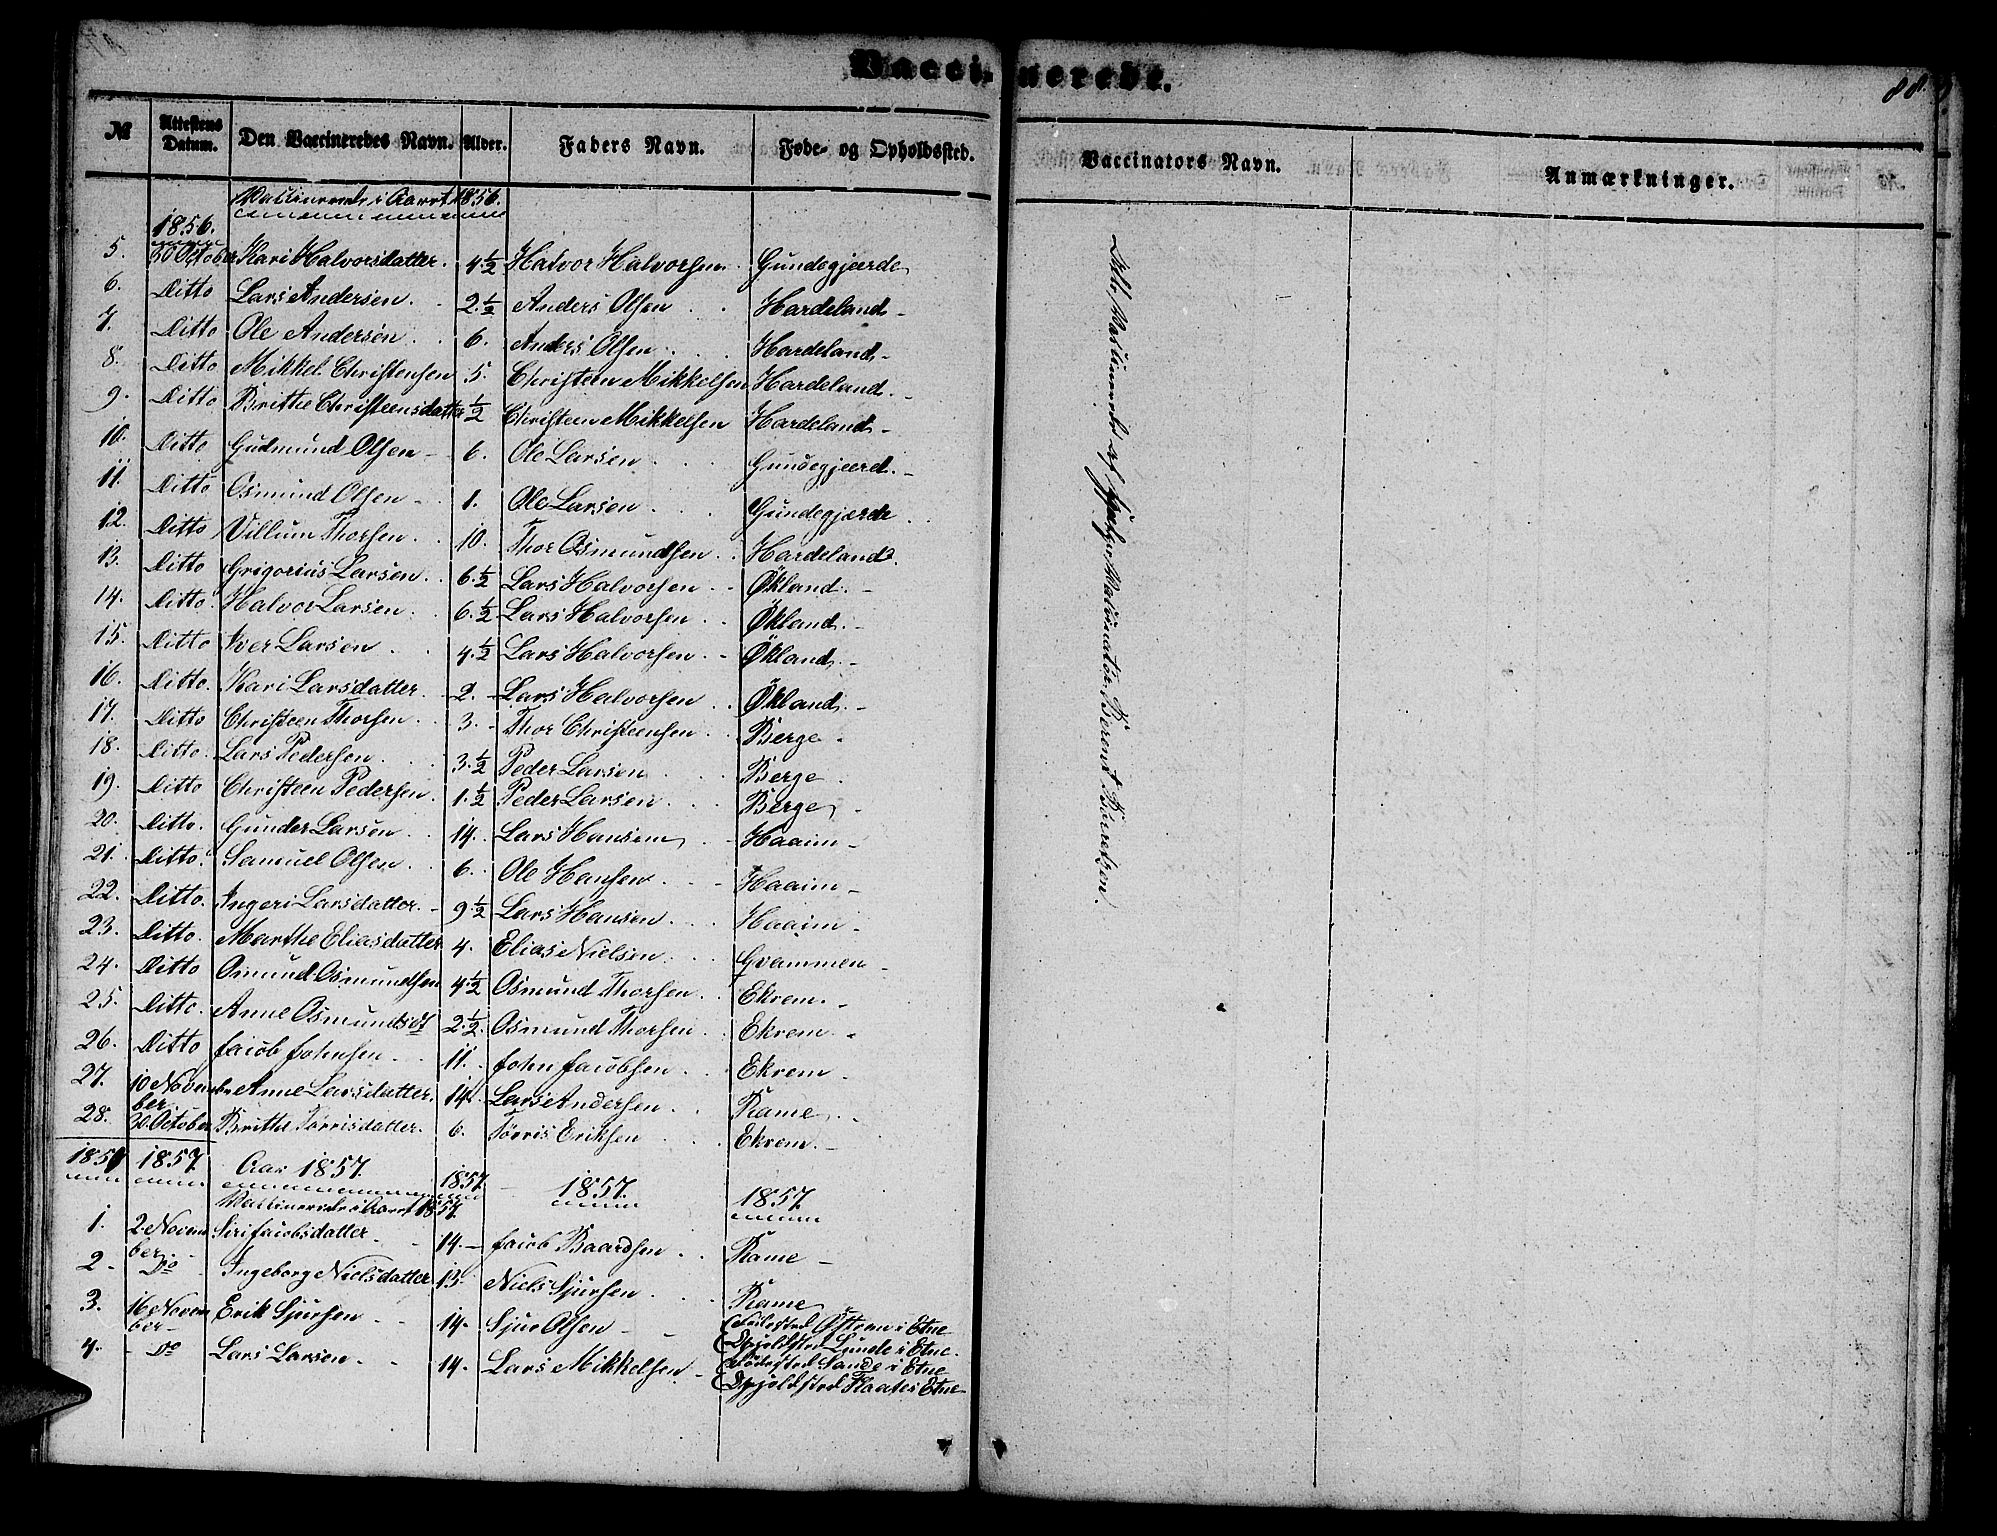 Vaccinerede.
88.
№ Attestens Datum. Den Vaccineredes Navn. Alder. Faders Navn. Føde- og Opholdssted. Vaccinators Navn. Anmærkninger.
Vaccinerede i Aaret 1856.
1856.
5. 30 October Kari Halvorsdatter. 4 ½ Halvor Halvorsen. Gundegjerde
6. Ditto Lars Andersen. 2. ½ Anders Olsen Hardeland -
7. Ditto Ole Andersen 6. Anders Olsen Hardeland -
8. Ditto Mikkel Christensen 5. Christeen Mikkelsen Hardeland. -
9. Ditto Brithe Christeensdatter ½ Christeen Mikkelsen Hardeland -
10. Ditto Gudmund Olsen - 6. Ole Larsen Gundegjerd. -
11. Ditto Osmund Olsen - 1. Ole Larsen Gundegjerde
12. Ditto Villum Thorsen 10. Thor Osmundsen Hardeland.
13. Ditto Grigorius Larsen 6. ½ Lars Halvorsen Økland. -
14. Ditto. Halvor Larsen 6. ½ Lars Halvorsen Økland. -
15. Ditto Iver Larsen 4. ½ Lars Halvorsen - Økland. -
16. Ditto. Kari Larsdatter 2. - Lars Halvorsen Økland. -
17. Ditto Christeen Thorsen 3. - Thor Christeensen Berge -
18. Ditto. Lars Pedersen 3. ½ Peder Larsen Berge
19. Ditto Christeen Pedersen. 1. ½ Peder Larsen Berge -
20. Ditto. Gunder Larsen 14. Lars Hansen - Haaim -
21. Ditto. Samuel Olsen 6. Ole Hansen - Haaim -
22. Ditto. Ingeri Larsdatter - 9 ½ Lars Hansen Haaim -
23. Ditto. Marthe Eliasdatter 4. Elias Nielsen Gvammen -
24. Ditto Osmund Osmundsen 4. ½ Osmund Thorsen Ekrem. -
25. Ditto. Anne Osmundsdt 2. ½ Osmund Thorsen Ekrem -
26. Ditto Jacob Johnsen 11. John Jacobsen Ekrem -
27. 10 November Anne Larsdatter. 14. Lars Andersen Rame -
28. 30 October Brithe Tørrisdatter. 6. Tørris Eriksen Ekrem. -
1857 1857. Aar 1857. 1857. 1857. 1857.
Vaccinerede i Aaret 1857.
1. 2. November Siri Jacobsdatter - 14. - Jacob Baardsen Rame -
2 - Do Ingeborg Nielsdatter 13. Niels Sjursen Rame
3. 16 November Erik Sjursen 14. Sjur Olsen - (Fødested Østem i Etne
(Opholdsted Lunde i Etne.
4. - Do Lars Larsen 14. Lars Mikkelsen - (Fødested Sande i Etne
(Opholdsted Flaate i Etne
Vaccinator Berent Berentsen.